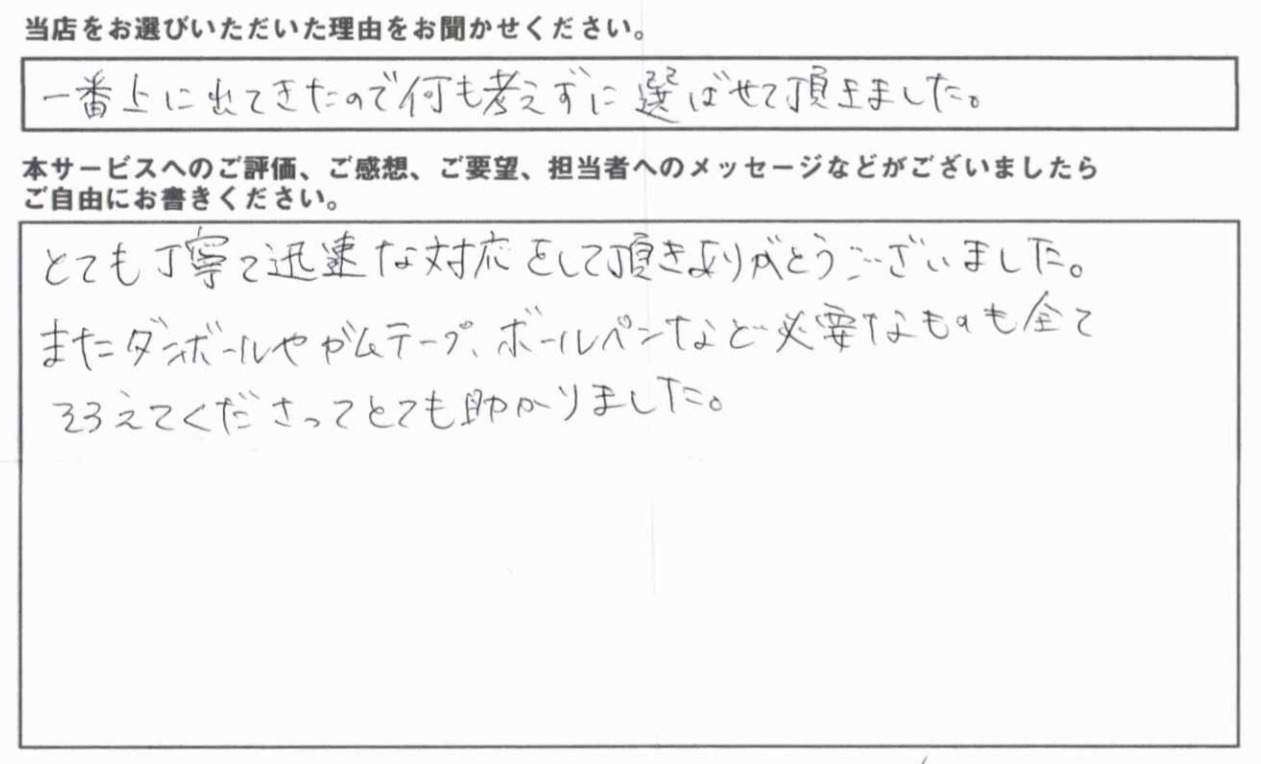 当店をお選びいただいた理由をお聞かせください。
一番上に出てきたので何も考えずに選ばせて頂きました。
本サービスへのご評価、ご感想、ご要望、担当者へのメッセージなどがございましたら
ご自由にお書きください。
とても丁寧で迅速な対応をして頂きありがとうございました。
またダンボールやガムテープ、ボールペンなど必要なものも全て
そろえてくださってとても助かりました。